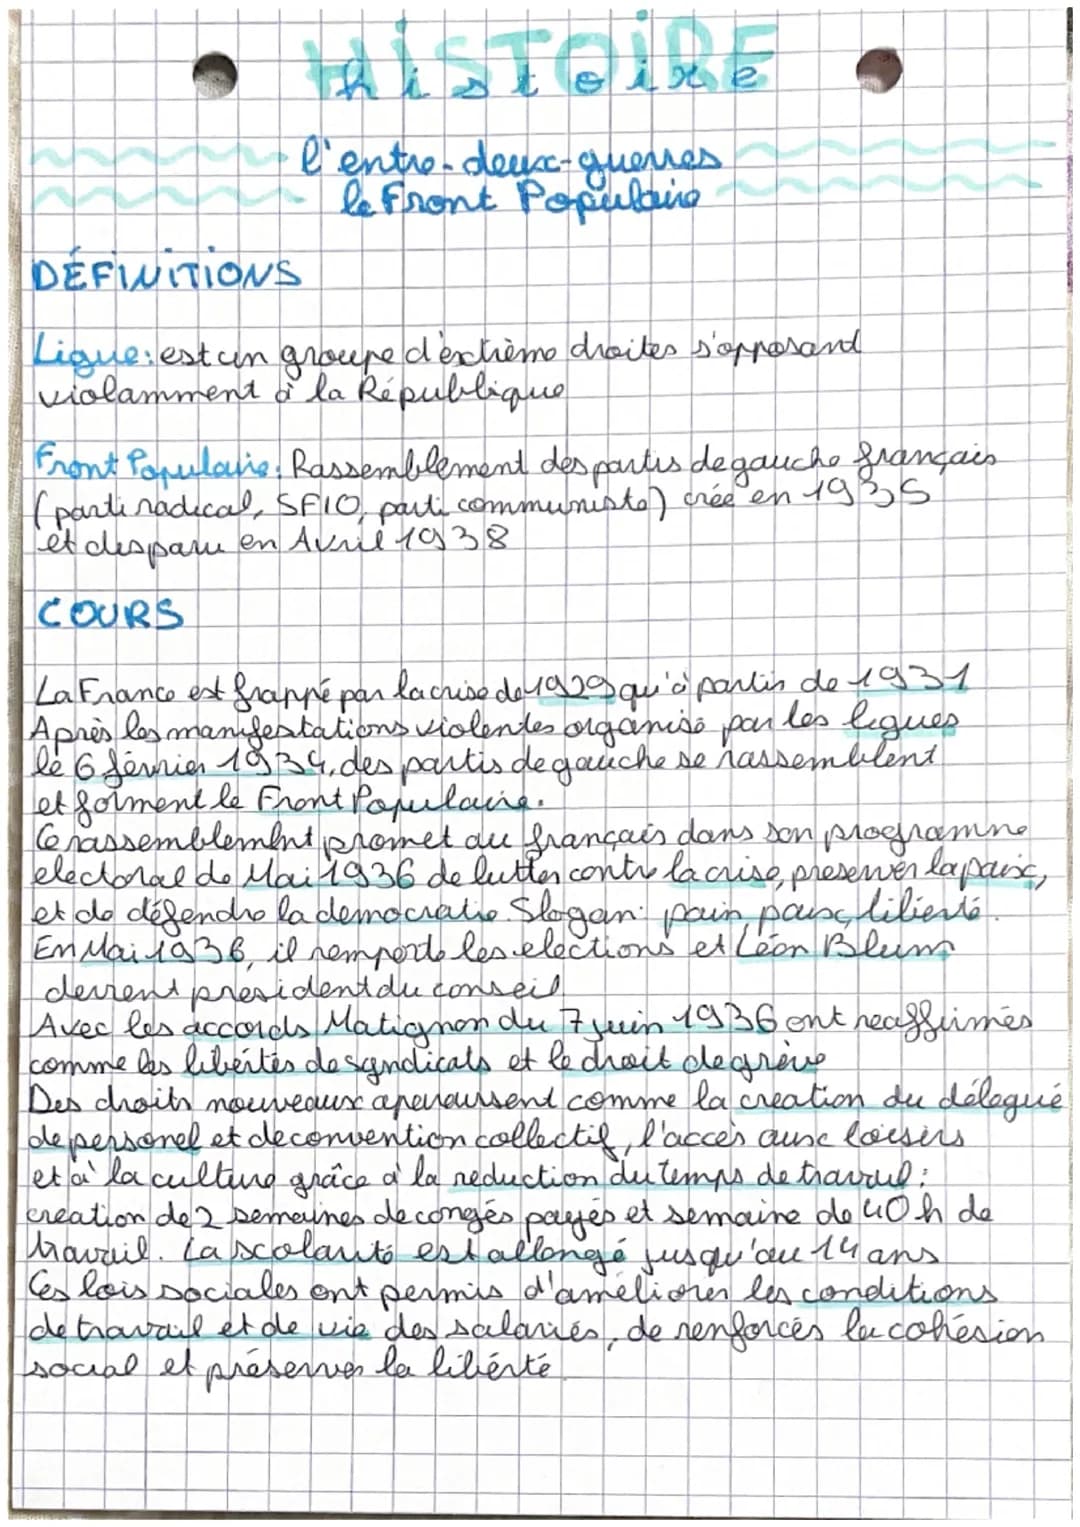 HISTOIRE
histoire
l'entre-deux-guerres
le Front Populaire
DÉFINITIONS
Ligue: est un groupe d'extrème droites s'opposand
violamment à la République
Front Populaire: Rassemblement des partis de gauche français
(parti radical, SFIO, parti communiste) crée en 1935
et disparu en Avril 1938
COURS
La France est frappé par la crise de 1929 qu'à partir de 1931
Après les manifestations violentes organisé par les ligues
le 6 février 1934, des partis de gauche se rassemblent
et forment le Front Populaire.
Ce rassemblement promet au français dans son programme
electoral de Mai 1936 de lutter contre la crise, preserver la paix,
et de défendre la democratie. Slogan: pain, paix, liberté.
En Mai 1936, il remporte les elections et Léon Blum
devient president du conseil
Avec les accords Matignon du 7 juin 1936 ont reaffirmés
comme les libértés de syndicats et le droit de grève
Des droits nouveaux aparaussent comme la creation du délégué
de personel et de convention collectif, l'accès aux loisirs
et à la culture grâce à la reduction du temps de travail:
creation de 2 semaines de congés payés et semaine de 40h de
travail. La scolarité est allongé jusqu'au 14 ans
Ces lois sociales ont permis d'améliorer les conditions
de travail et de vie des salariés, de renforcés la cohésion
social et préserver la libérté